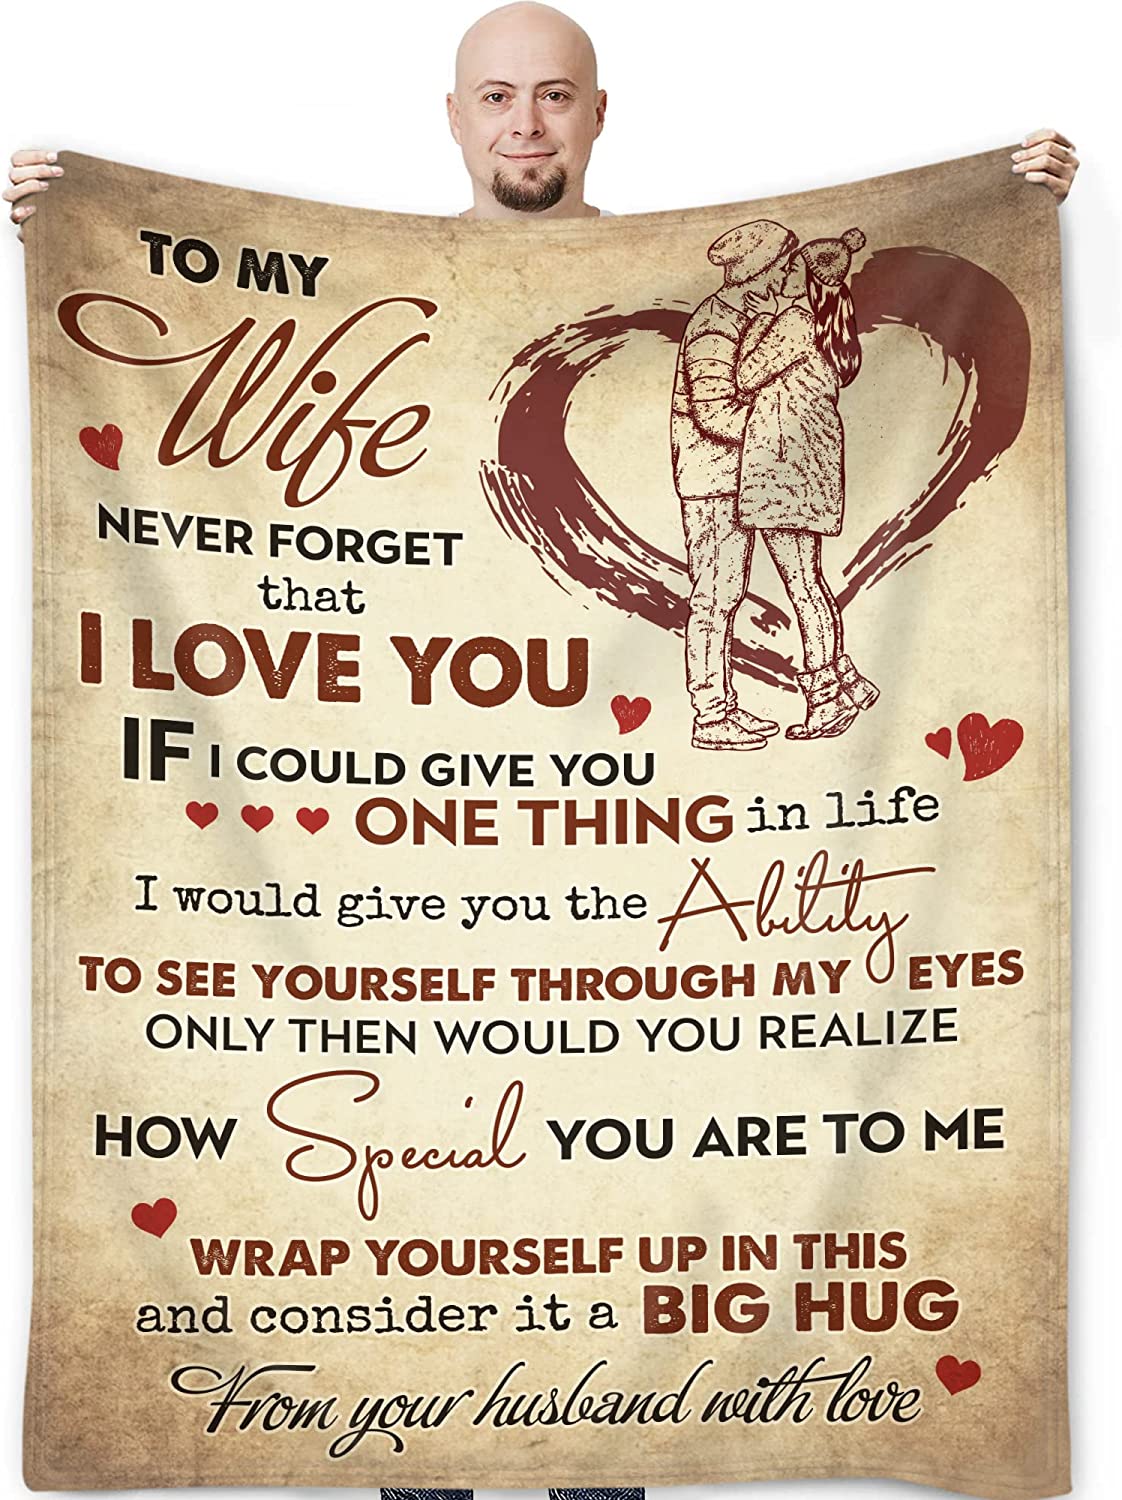 TO MY
Wife
NEVER FORGET
that
I LOVE YOU
IF I COULD GIVE YOU
ONE THING in life
I would give you the Ability
TO SEE YOURSELF THROUGH MY EYES
ONLY THEN WOULD YOU REALIZE
HOW Special YOU ARE TO ME
WRAP YOURSELF UP IN THIS
and consider it a BIG HUG
From your husband with love